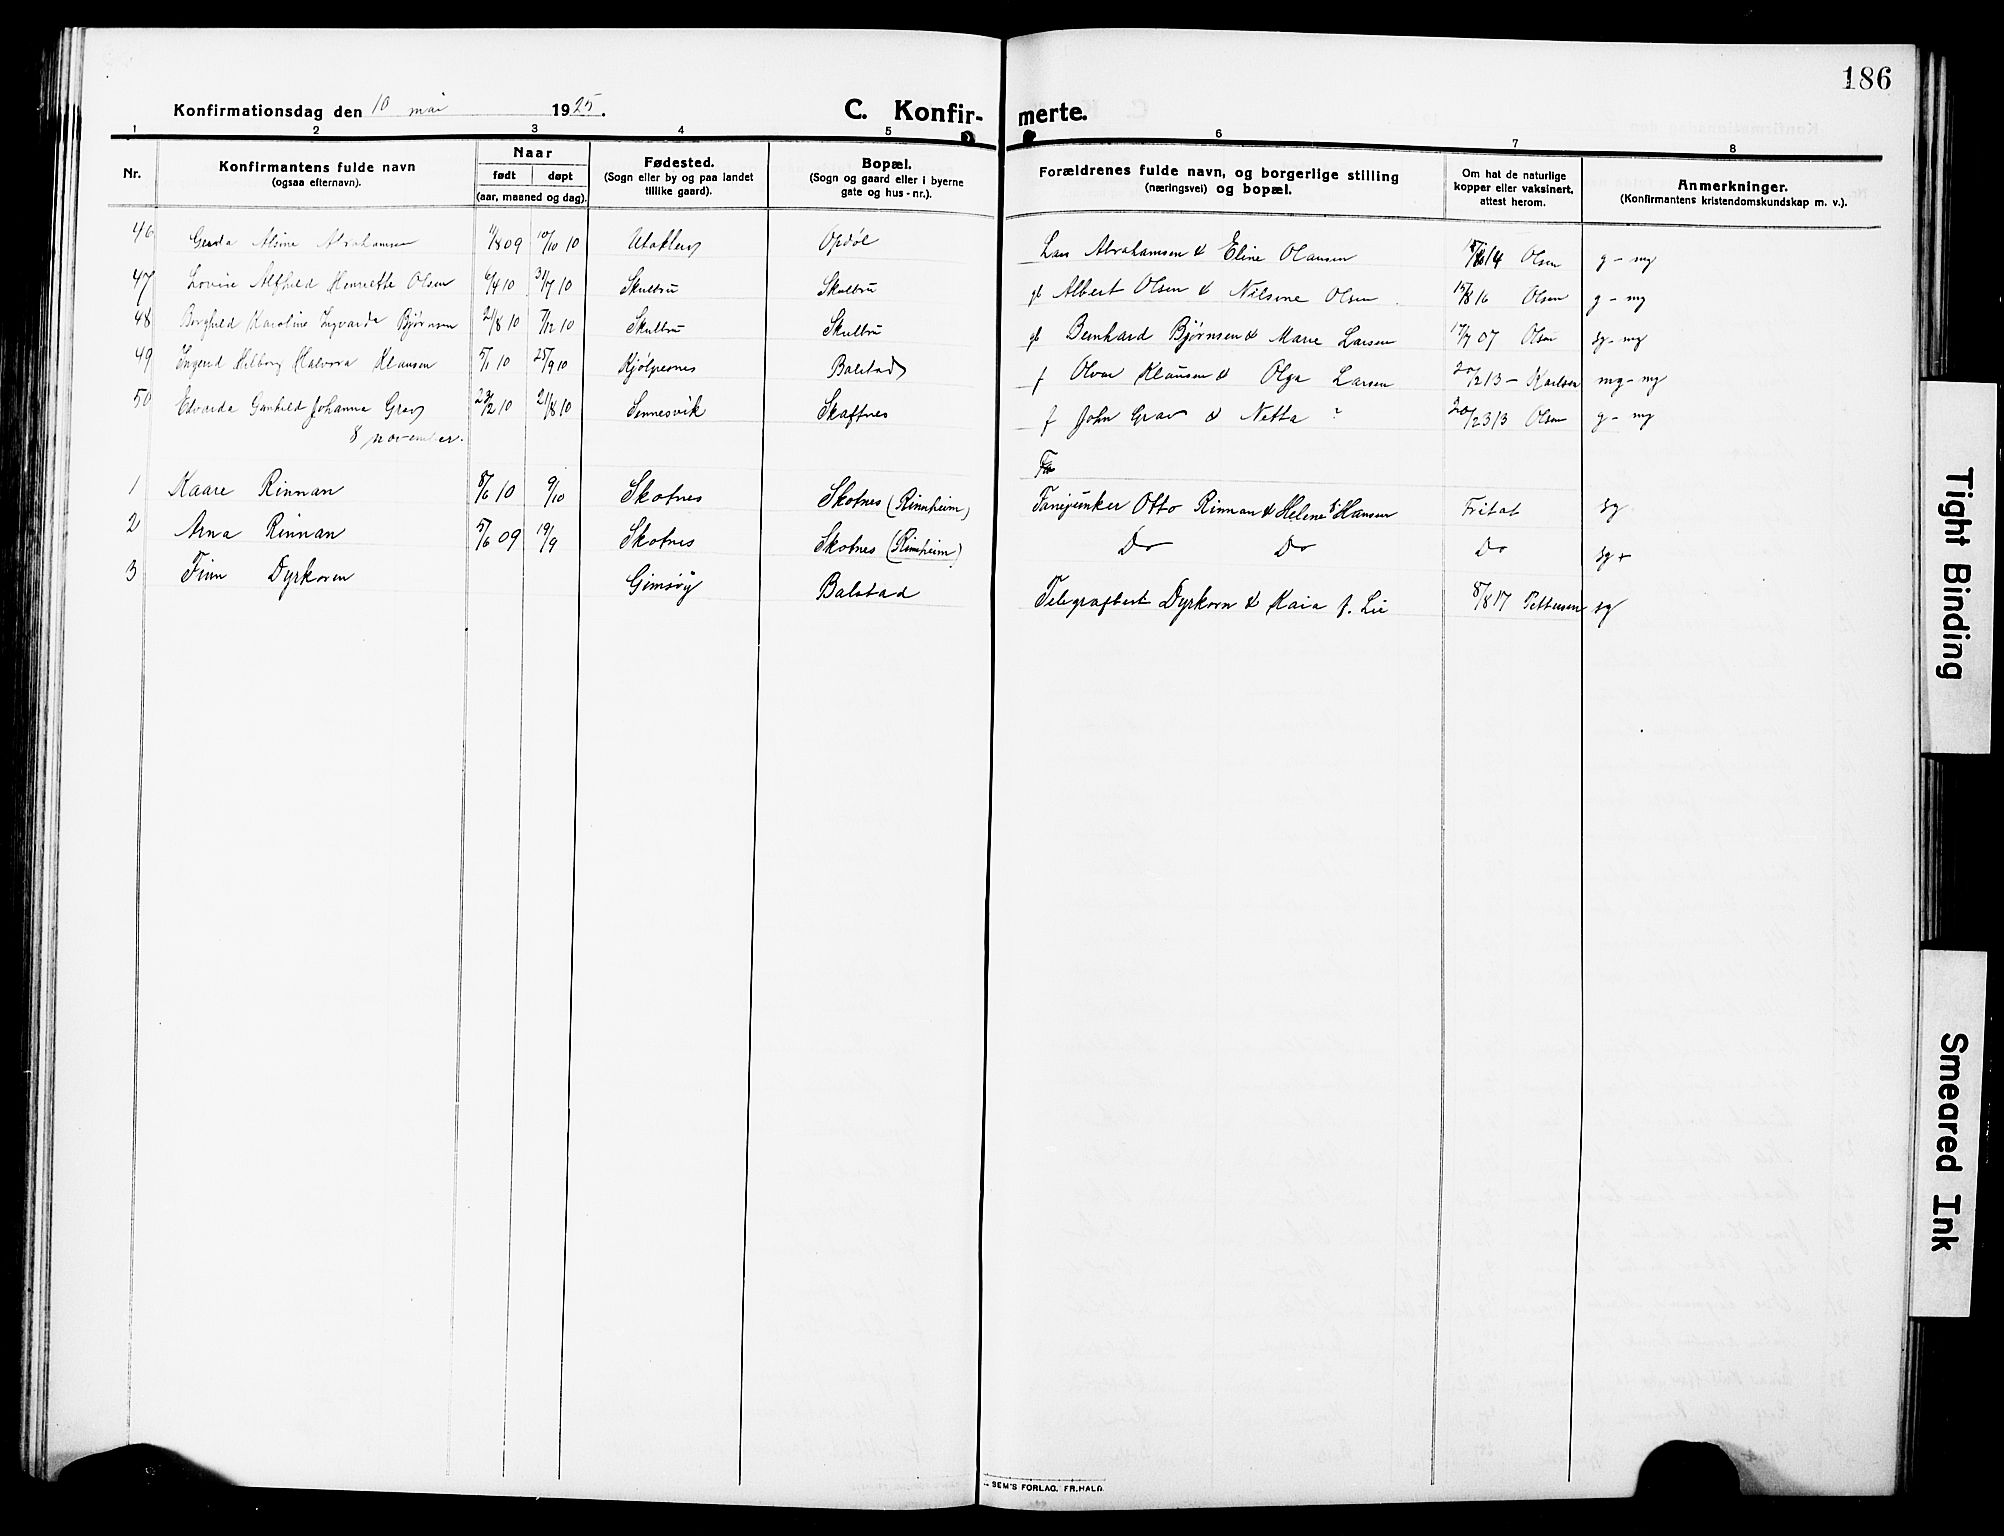 186
Konfirmationsdag den 10 mai 1925.
C. Konfir-
merte.
1 2 3 4 5 6 7 8
Nr.
Konfirmantens fulde navn
(ogsaa efternavn).
Naar
født døpt
(aar, maaned og dag).
Fødested.
(Sogn eller by og paa landet
tillike gaard).
Bopæl.
(Sogn og gaard eller i byerne
gate og hus-nr.).
Forældrenes fulde navn, og borgerlige stilling
(næringsvei) og bopæl.
Om hat de naturlige
kopper eller vaksinert,
attest herom.
Anmerkninger.
(Konfirmantens kristendomskundskap m. v.).
46 Gerda Alsine Abrahamsen 11/8 09 10/10 10 Utakleiv Opdøl Lars Abrahamsen & Eline Olausen 14 Olsen g - mg
47 Lovise Alfhild Henriette Olsen 6/4 10 31/7 10 Skulbru Skulbru gb Albert Olsen & Nilsine Olsen 15/8 16 Olsen g - mg
48 Borghild Karoline Ingvarda Bjørnsen 21/8 10 7/12 10 Skulbru Skulbru gb Bernhard Bjørnsen & Marie Larsen 17/7 07 Olsen sg - mg
49 Ingerid Vilborg Halvora Klausen 5/1 10 25/9 10 Kjølpernes Balstad f Olvar Klausen & Olga Larsen 20/2 13 - Karlsen mg - mg
50 Edvarda Gunhild Johanna Grav 23/2 10 21/8 10 Sennesvik Skaftnes f John Grav & Netta ? 20/23 13 Olsen g - mg
8 november.
Fa
1 Kaare Rinnan 8/6 10 9/10 Skotnes Skotnes (Rinnheim) Fanejunker Otto Rinnan & Helene f Hansen Fritat sg
2 Arna Rinnan 5/6 09 19/9 Skotnes Skotnes (Rinnheim) Do Do Do sg +
3 Finn Dyrkoren Gimsøy Balstad Telegrafbest Dyrkorn & Kaia f. Lie 8/8 17 Pettersen sg
SEM'S FORLAG. FR.HALD.
Tight Binding
Smeared Ink